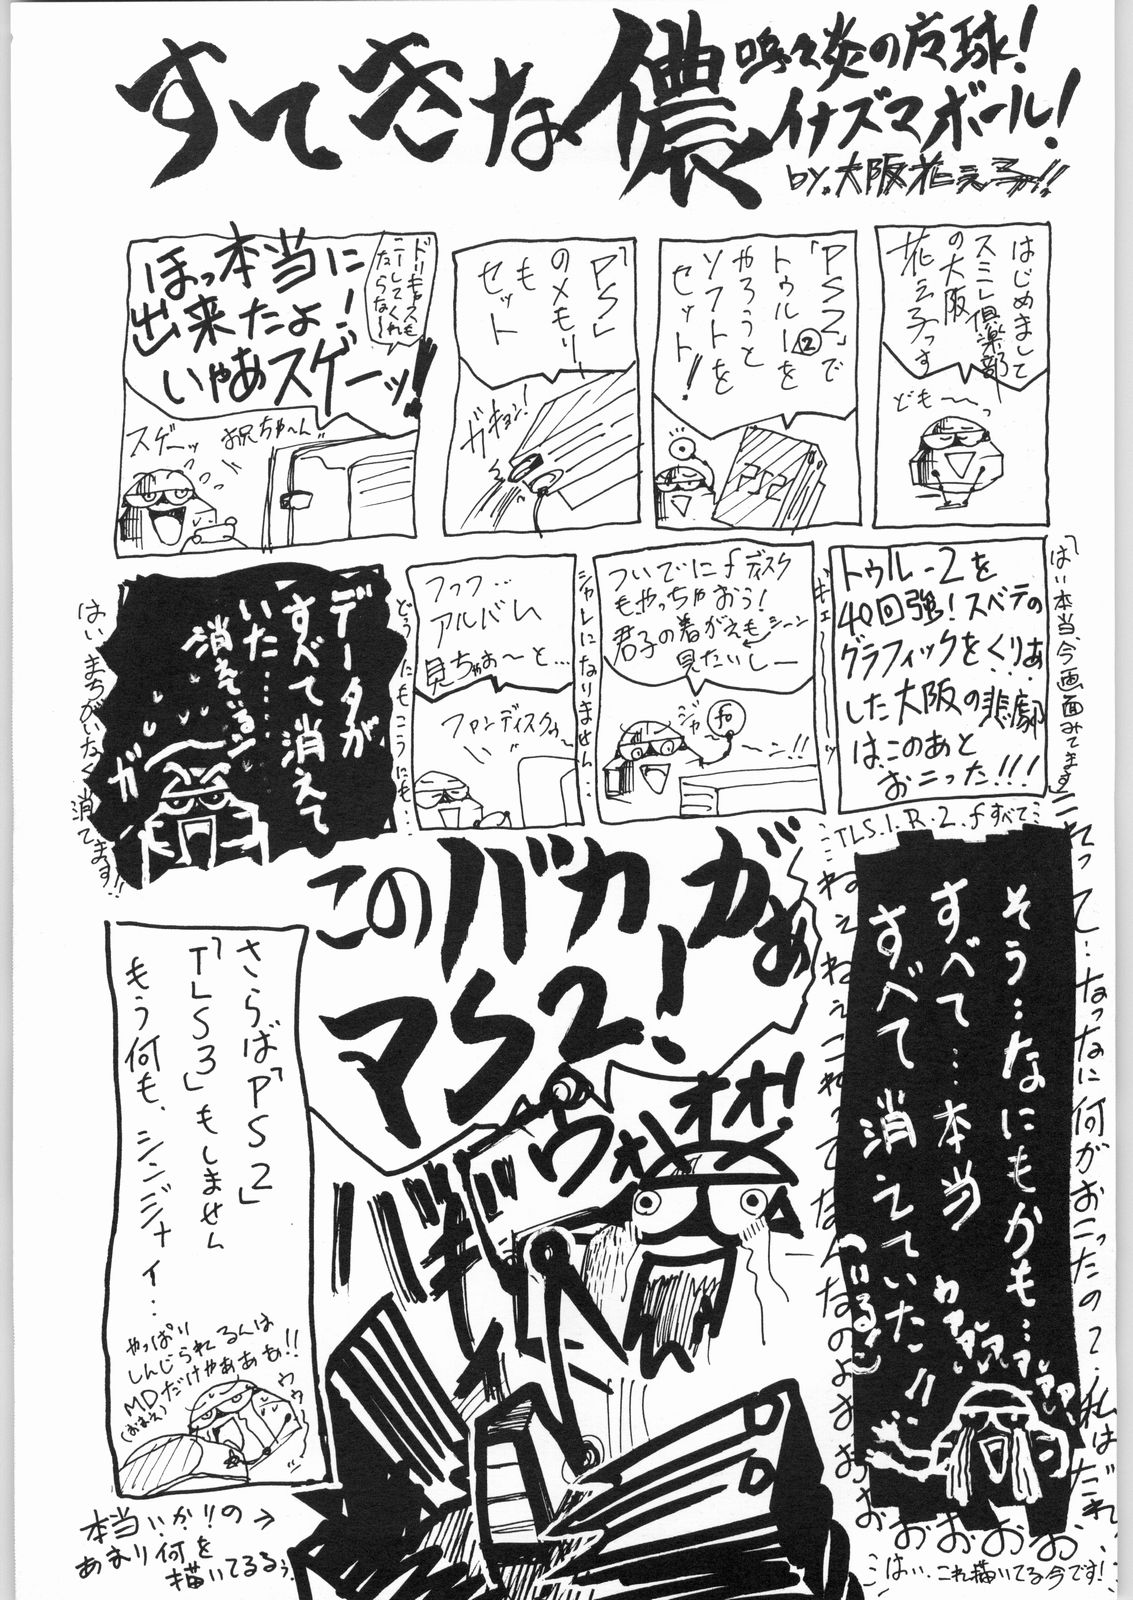 すてきな儂
嗚々炎の広球!
イナズマボール!
by.大阪花ゑ子が!!
はじめまして
スミレ倶楽部
の大阪
花ゑ子っす
ども〜っ
「PS2」で
トゥルー2を
やろうと
ソフトを
セット!
PS2
「PS」
のメモリー
も
セット
ガキョン!
ほっ本当に
出来たよ!
いやあスゲーッ!
スゲーッ
お兄ちゃ〜ん
「はい本当、今画面みてます」
トゥルー2を
40回強!スベテの
グラフィックをくりあ
した大阪の悲劇
はこのあと
おこった!!!
ついでにfディスク
もやっちゃおう!
君子の着がえもシーン
見たいしー
ジャ
fo
ーン!!
シャレになりません…
フッフ…
アルバム
見ちゃお〜と…
ファンディスクの
どうにもこうにも…
データが
すべて消えて
いた……
消えている!
ガ
はいまちがいなく消てます!!
TLS.1.R.2.fすべて…
これって…なっなに何がおこったの?私はだれ!
そう…なにもかも…
すべて…本当
すべて消えていた!!
(いるン)
わアアアアア
ねぇねぇこれってなんなのよおおおおおおおお
はい、これ描いてる今です!
このバカ!があ
マS2!
ウオオオ!
バギ
さらば「PS2」
「TLS3」もしません
もう何も、シンジナイ…
やっぱり
しんじられるんは
MDだけやあああ!!
(おまえ)
ウウー
本当いか!!の→
あまり何を
描いてるぅ